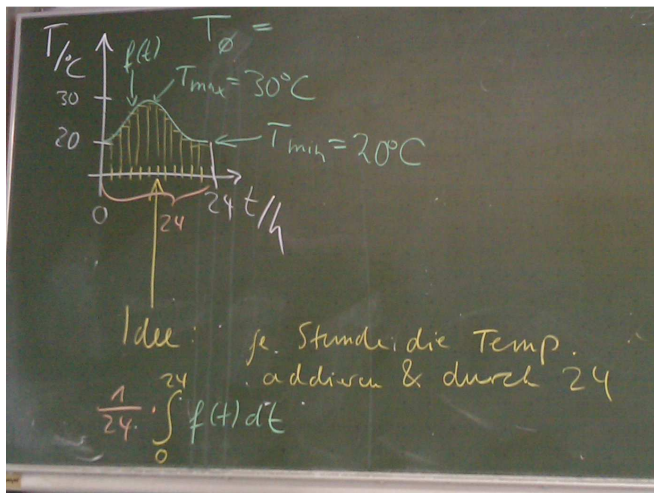 T/°C
T⌀ =
f(t)
Tmax = 30°C
30
20
Tmin = 20°C
0
24
24 t/h
Idee: je Stunde die Temp.
addieren & durch 24
1/24 · ∫₀²⁴ f(t) dt